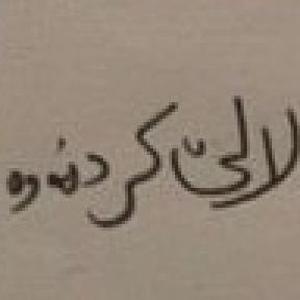 لالێ کردنەوە